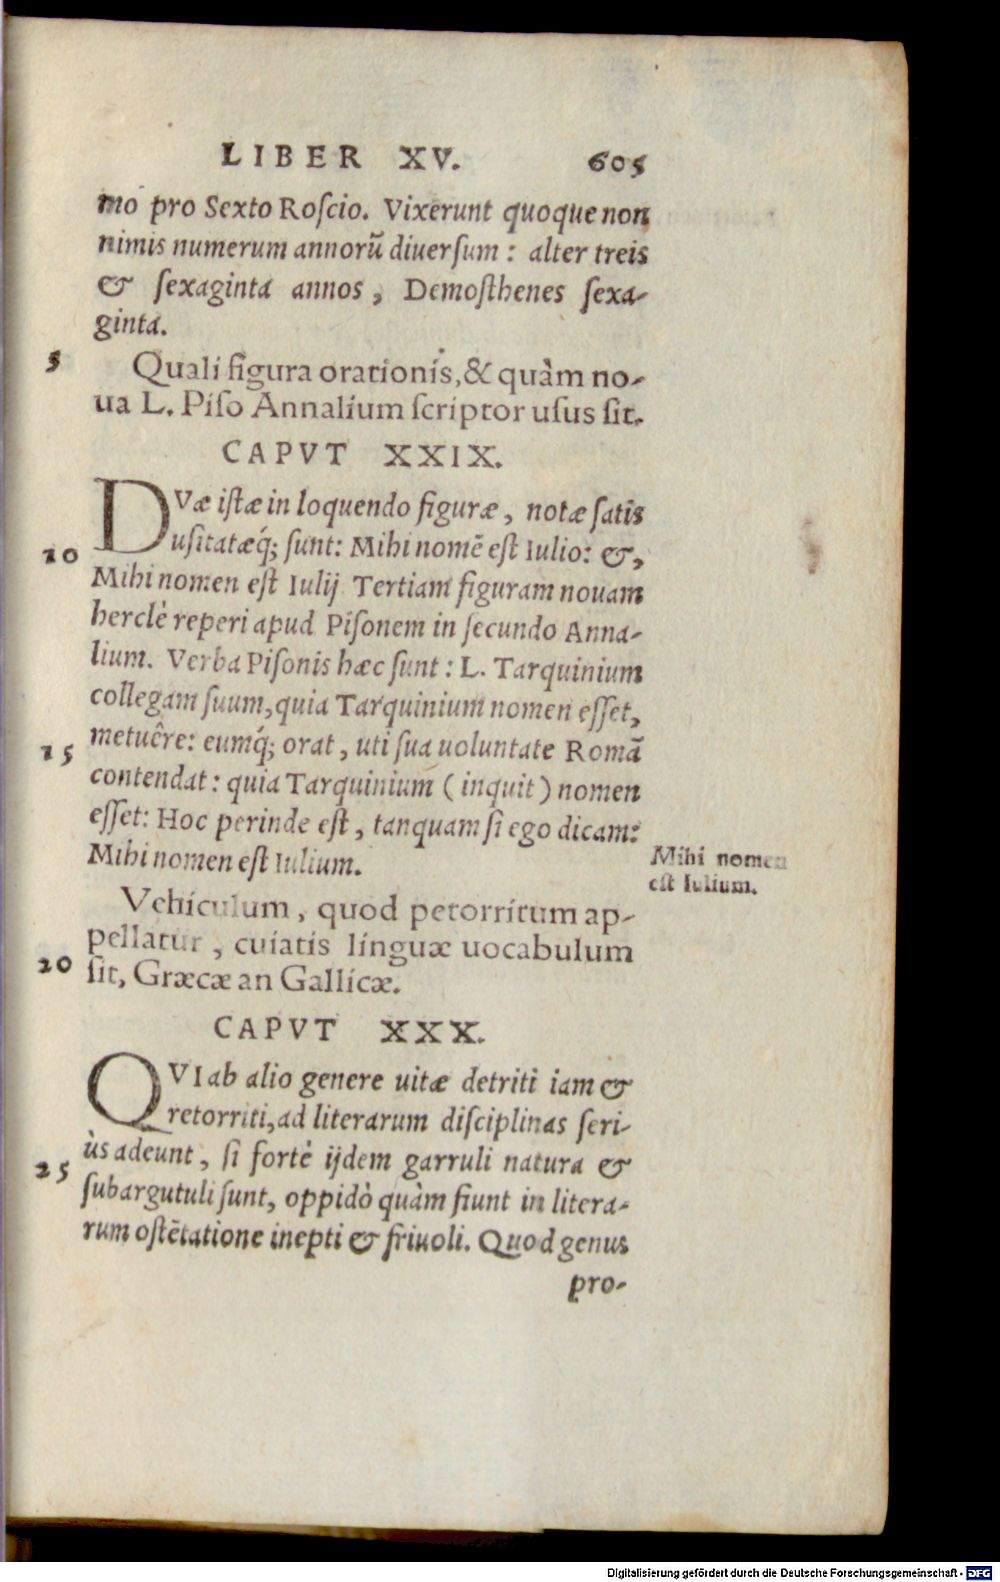 LIBER XV. 605
mo pro Sexto Roſcio. Vixerunt quoque non
nimis numerum annorũ diuerſum: alter treis
& ſexaginta annos, Demoſthenes ſexa-
ginta.
5 Quali figura orationis, & quàm no-
ua L. Piſo Annalium ſcriptor uſus ſit.
CAPVT XXIX.
DVæ iſtæ in loquendo figuræ, notæ ſatis
10 uſitatæq́; ſunt: Mihi nomẽ eſt Iulio: &,
Mihi nomen eſt Iulij Tertiam figuram nouam
herclè reperi apud Piſonem in ſecundo Anna-
lium. Verba Piſonis hæc ſunt: L. Tarquinium
collegam ſuum, quia Tarquinium nomen eſſet,
15 metuêre: eumq́; orat, uti ſua uoluntate Romã
contendat: quia Tarquinium (inquit) nomen
eſſet: Hoc perinde eſt, tanquam ſi ego dicam:
Mihi nomen eſt Iulium.
Mihi nomen
eſt Iulium.
Vehiculum, quod petorritum ap-
pellatur, cuiatis linguæ uocabulum
20 ſit, Græcæ an Gallicæ.
CAPVT XXX.
QVI ab alio genere uitæ detriti iam &
retorriti, ad literarum diſciplinas ſeri-
25 ùs adeunt, ſi fortè ijdem garruli natura &
ſubargutuli ſunt, oppidò quàm fiunt in litera-
rum oſtẽtatione inepti & friuoli. Quod genus
pro-
Digitalisierung gefördert durch die Deutsche Forschungsgemeinschaft - DFG